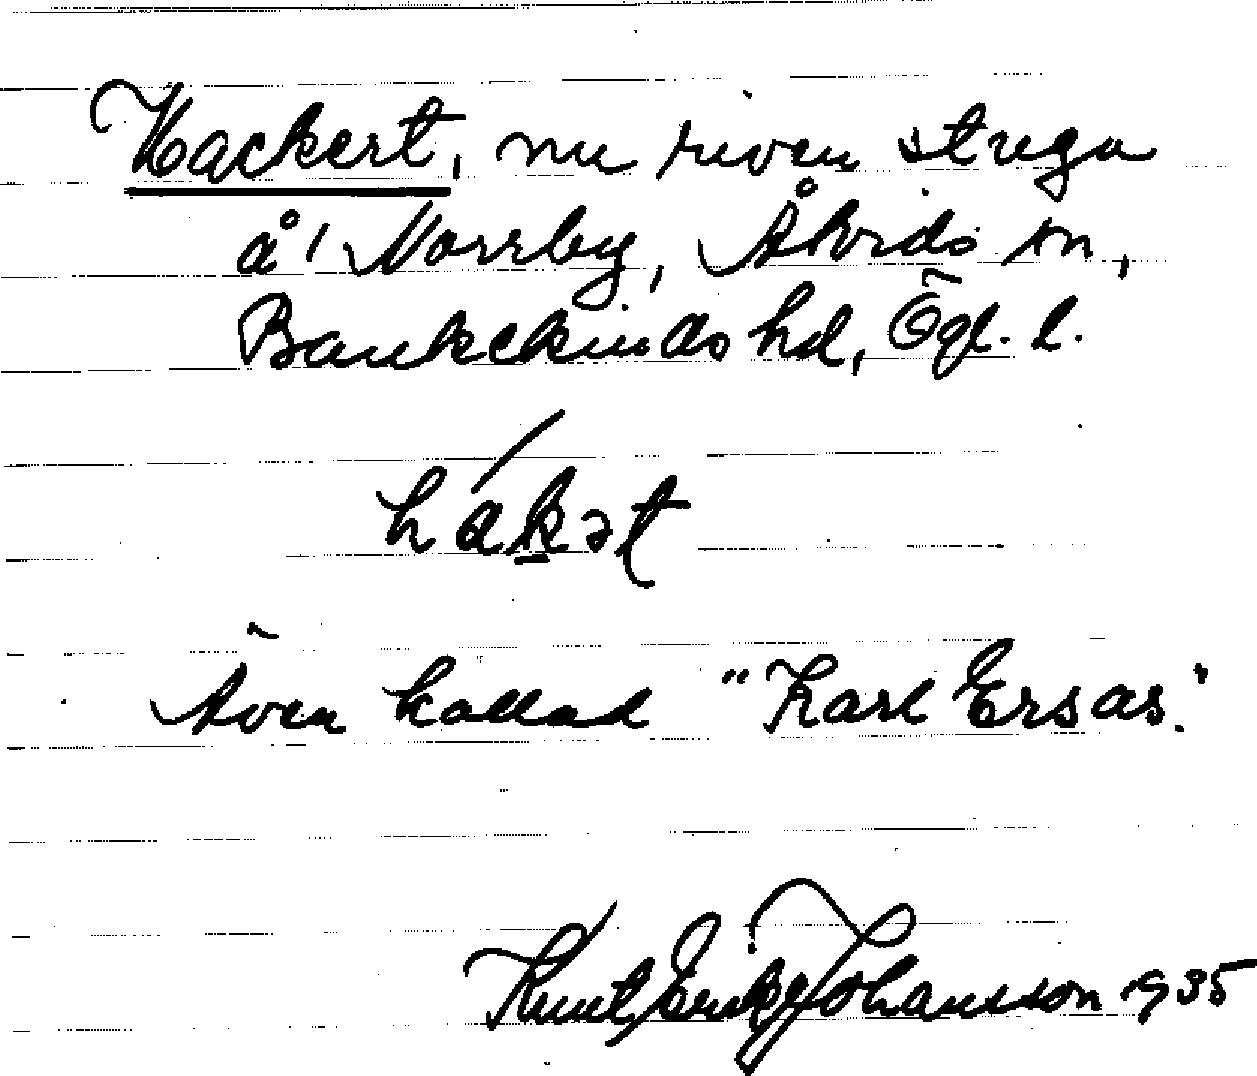 Hackert, nu riven stuga
å Norrby, Åtvids sn,
Bankekinds hd, Ögl. l.
hákət
Även kallad "Karl Ersas."
Knut Erik Johansson 1935